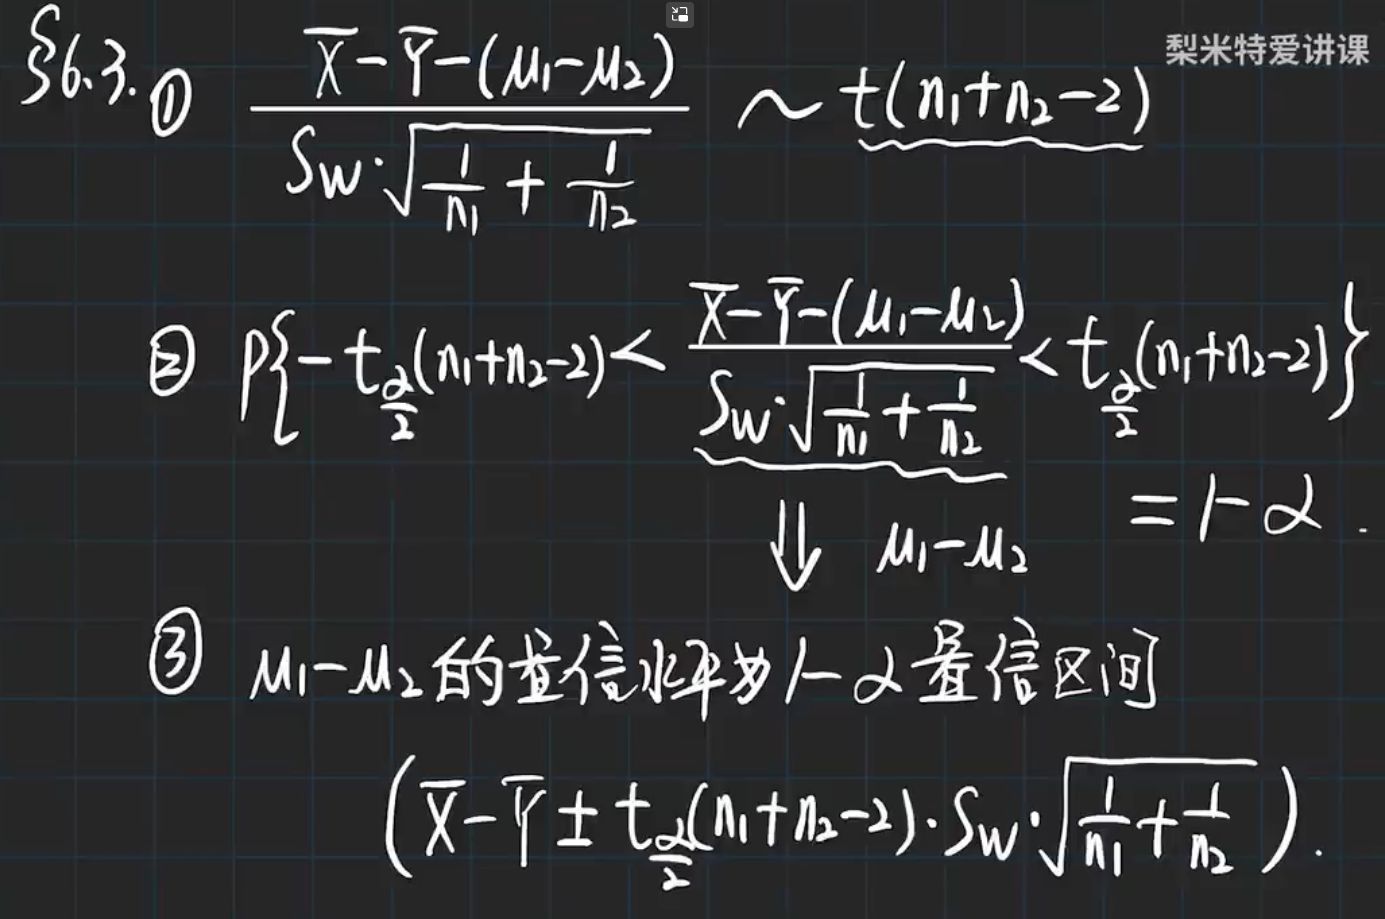 梨米特爱讲课
§6.3. ① (X̄-Ȳ-(μ₁-μ₂))/(S_W·√(1/n₁+1/n₂)) ~ t(n₁+n₂-2)
② P{-t_{α/2}(n₁+n₂-2)<(X̄-Ȳ-(μ₁-μ₂))/(S_W·√(1/n₁+1/n₂))<t_{α/2}(n₁+n₂-2)}
=1-α.
⇓ μ₁-μ₂
③ μ₁-μ₂的置信水平为1-α置信区间
(X̄-Ȳ±t_{α/2}(n₁+n₂-2)·S_W·√(1/n₁+1/n₂)).